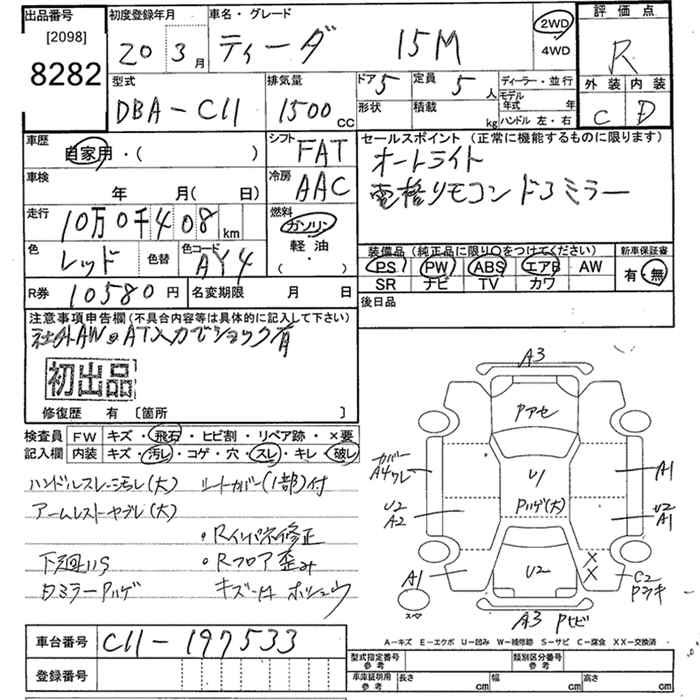 出品番号
[2098]
8282
初度登録年月
20年 3月
車名・グレード
ティーダ 15M
2WD
4WD
評価点
R
外装 内装
C D
型式
DBA-C11
排気量
1500 CC
ドア 5
定員 5人
形状
積載 kg
ディーラー・並行
モデル年式 年
ハンドル 左・右
車歴
自家用・( )
シフト
FAT
車検
年 月( 日)
冷房
AAC
走行
10万0千408 km
燃料
ガソリン
軽油
( ・ )
色
レッド
色替
色コード
AY4
セールスポイント (正常に機能するものに限ります)
オートライト
電格リモコンドアミラー
装備品 (純正品に限り○をつけてください)
PS PW ABS エアB AW
SR ナビ TV カワ
新車保証書
有・無
R券 10580円
名変期限 月 日
後日品
注意事項申告欄 (不具合内容等は具体的に記入して下さい)
社外AW・ATスカでショック有
初出品
修復歴 有 〔箇所 〕
検査員
記入欄
FW キズ・飛石・ヒビ割・リペア跡・×要
内装 キズ・汚レ・コゲ・穴・スレ・キレ・破レ
ハンドルスレ汚レ(大) シートカバー(1部)付
アームレストヤブレ(大)
・Rインパネ修正
下廻りS ・Rフロア歪み
ミラーPハゲ キズ
A3
Pアセ
カバー
A4ワレ
U1
A1
Pハゲ(大)
U2
A2
U2
A1
A1
U2
×
×
C2
スペア
A3 Pサビ
車台番号 C11-197533
登録番号
A-キズ E-エクボ U-凹み W-補修跡 S-サビ C-腐食 XX-交換済
型式指定番号
参考
類別区分番号
参考
車庫証明用
参考
長さ cm 幅 cm 高さ cm